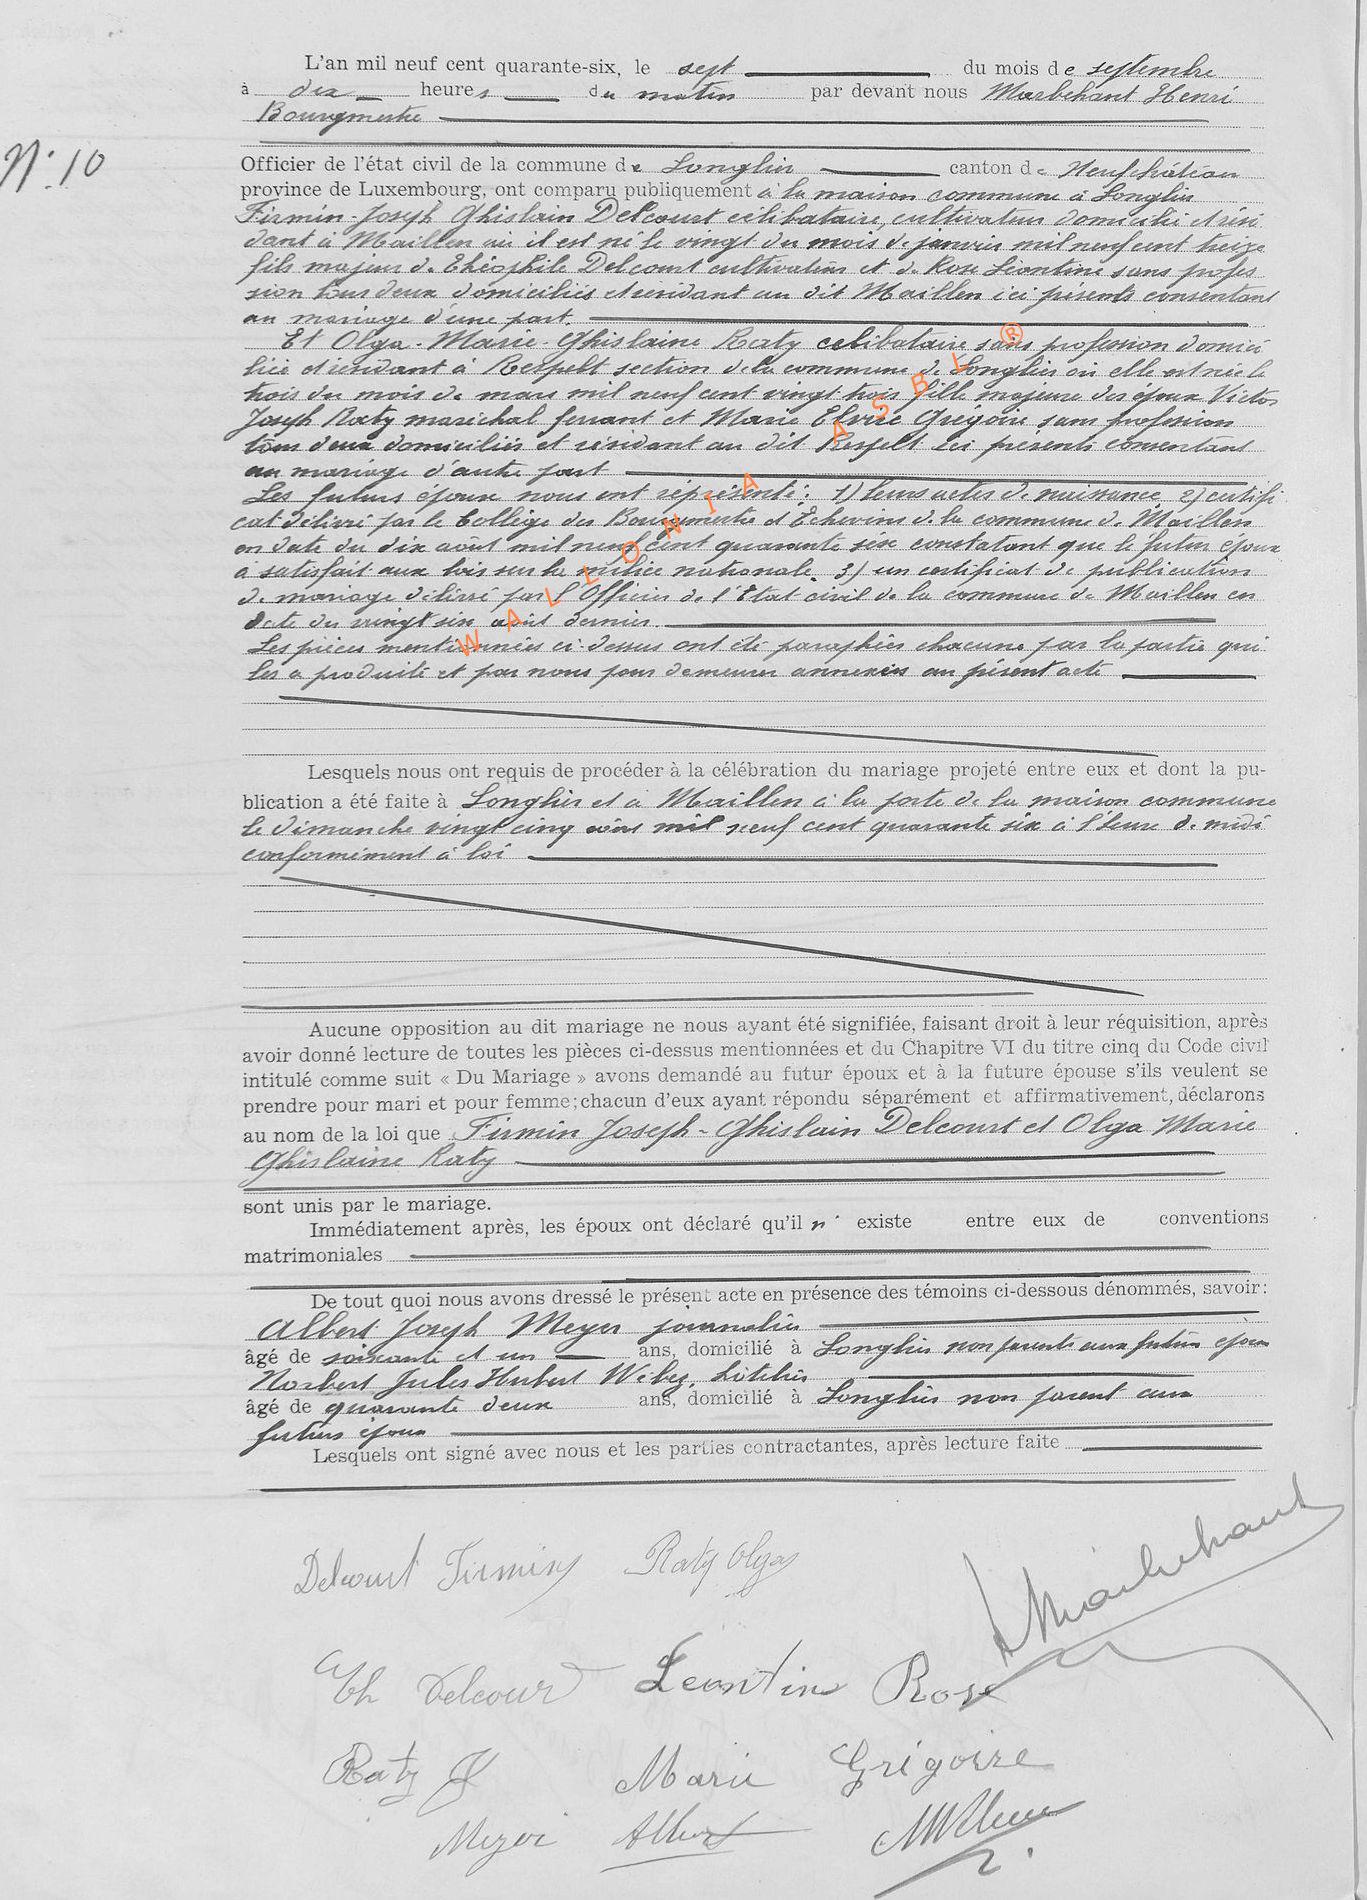 L'an mil neuf cent quarante-six, le sept du mois de septembre
à dix heures du matin par devant nous Marbehant Henri
Bourgmestre
N° 10
Officier de l'état civil de la commune de Longlier canton de Neufchâteau
province de Luxembourg, ont comparu publiquement à la maison commune à Longlier
Firmin-Joseph Ghislain Delcourt célibataire, cultivateur domicilié et rési
dant à Maillen où il est né le vingt du mois de janvier mil neuf cent treize
fils majeur de Théophile Delcourt cultivateur et de Rose Léontine sans profes
sion tous deux domiciliés et résidant au dit Maillen ici présents consentant
au mariage d'une part.
Et Olga-Marie-Ghislaine Raty célibataire sans profession domici
liée et résidant à Respelt section de la commune de Longlier où elle est née le
trois du mois de mars mil neuf cent vingt trois fille majeure des époux Victor
Joseph Raty maréchal ferrant et Marie Elvire Grégoire sans profession
tous deux domiciliés et résidant au dit Respelt ici présents consentant
au mariage d'autre part
Les futurs époux nous ont représenté: 1) leurs actes de naissance 2) certifi
cat délivré par le Collège des Bourgmestre et Echevins de la commune de Maillen
en date du dix août mil neuf cent quarante six constatant que le futur époux
a satisfait aux lois sur la milice nationale. 3) un certificat de publication
de mariage délivré par l'Officier de l'Etat civil de la commune de Maillen en
date du vingt six août dernier.
Les pièces mentionnées ci-dessus ont été paraphées chacune par la partie qui
les a produite et par nous pour demeurer annexées au présent acte
WALLONIA ASBL ®
Lesquels nous ont requis de procéder à la célébration du mariage projeté entre eux et dont la pu-
blication a été faite à Longlier et à Maillen à la porte de la maison commune
le dimanche vingt cinq août mil neuf cent quarante six à l'heure de midi
conformément à loi
Aucune opposition au dit mariage ne nous ayant été signifiée, faisant droit à leur réquisition, après
avoir donné lecture de toutes les pièces ci-dessus mentionnées et du Chapitre VI du titre cinq du Code civil
intitulé comme suit « Du Mariage » avons demandé au futur époux et à la future épouse s'ils veulent se
prendre pour mari et pour femme; chacun d'eux ayant répondu séparément et affirmativement, déclarons
au nom de la loi que Firmin Joseph-Ghislain Delcourt et Olga Marie
Ghislaine Raty
sont unis par le mariage.
Immédiatement après, les époux ont déclaré qu'il n' existe entre eux de conventions
matrimoniales
De tout quoi nous avons dressé le présent acte en présence des témoins ci-dessous dénommés, savoir:
Albert Joseph Meyer journalier
âgé de soixante et un ans, domicilié à Longlier non parent aux futurs époux
Norbert Jules Hubert hôtelier
âgé de quarante deux ans, domicilié à Longlier non parent aux
futurs époux
Lesquels ont signé avec nous et les parties contractantes, après lecture faite
Delcourt Firmin Raty Olga
Marbehant
Th Delcourt Leontine Rose
Raty Marie Grégoire
Meyer Albert